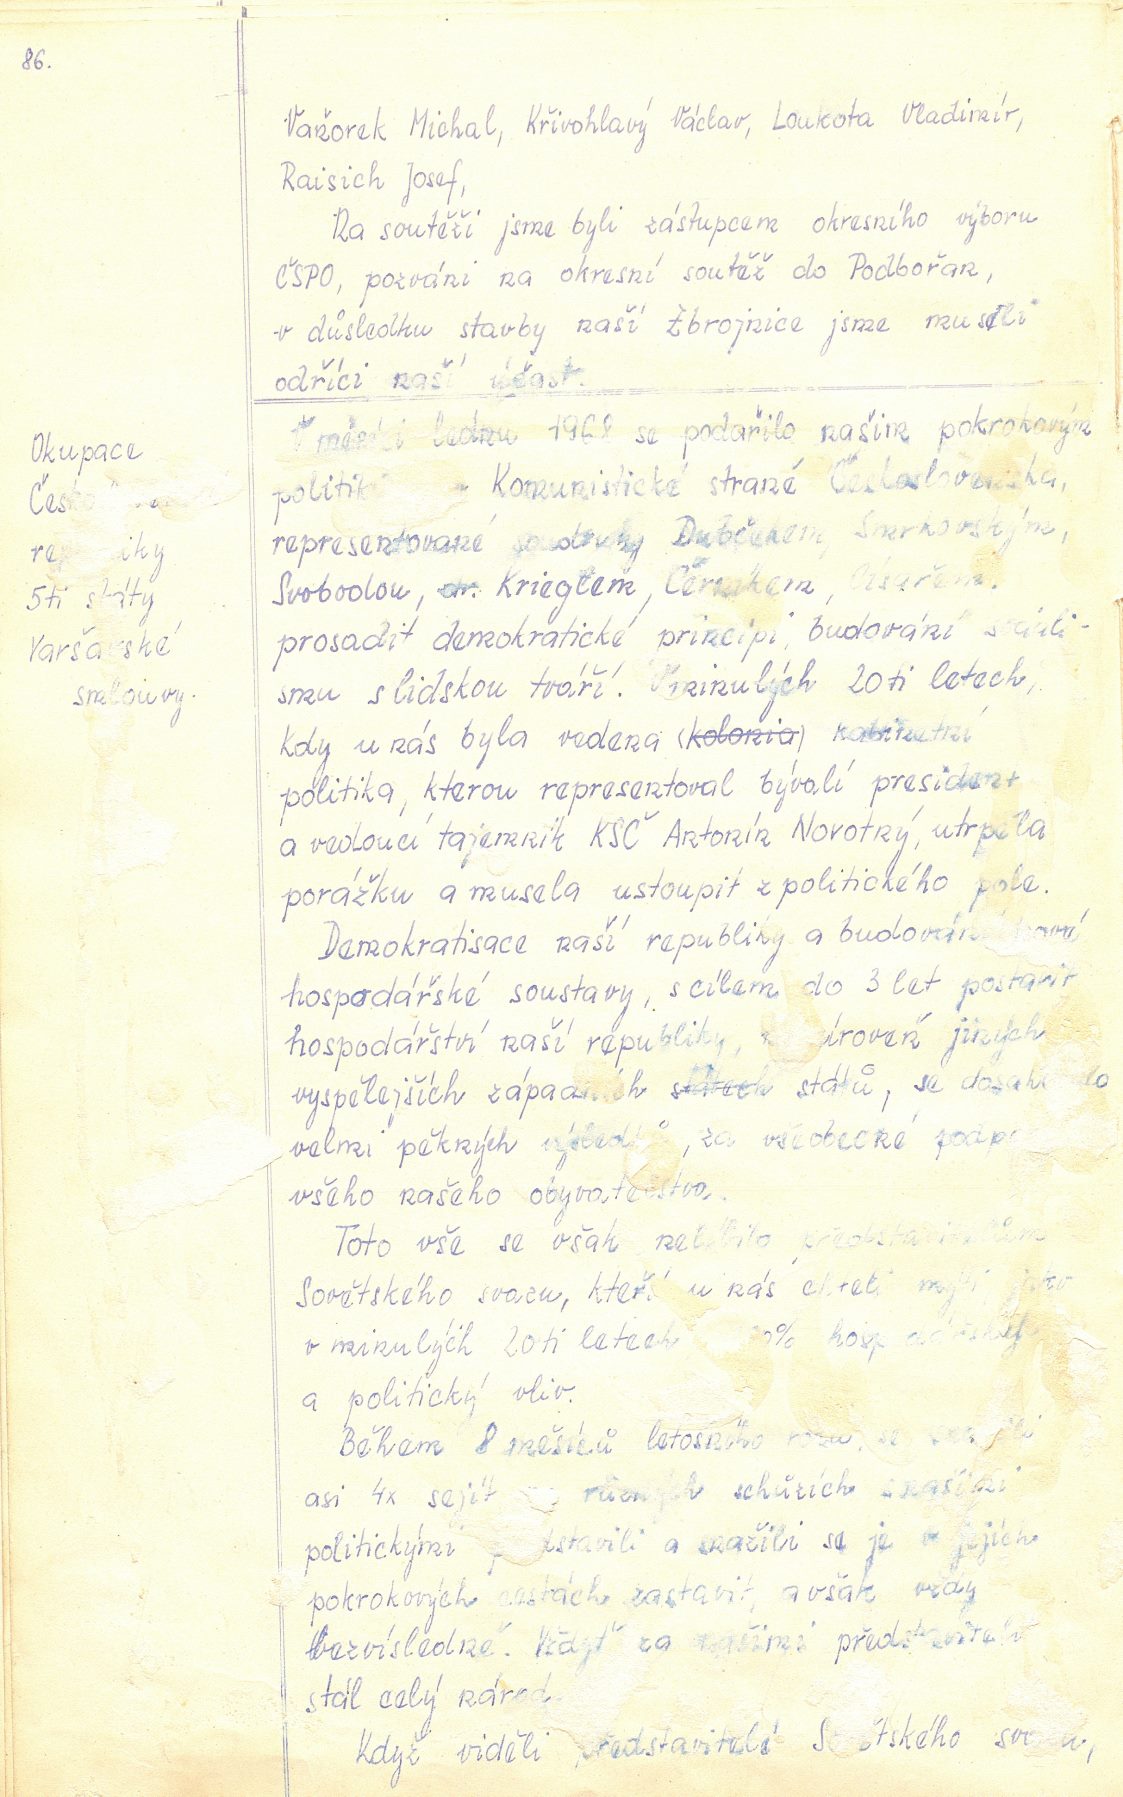 86.
Vanorek Michal, Křivohlavý Václav, Loukota Vladimír,
Raisich Josef,
Na soutěži jsme byli zástupcem okresního výboru
ČSPO, pozváni na okresní soutěž do Podbořan,
v důsledku stavby naší Zbrojnice jsme museli
odříci naší účast.
Okupace
Česko
republiky
5ti státy
Varšavské
smlouvy.
V měsíci lednu 1968 se podařilo našim pokrokovým
politik Komunistické straně Československa,
representované soudruhy Dubčekem, Smrkovským,
Svobodou, dr. Krieglem, Černíkem, Císařem.
prosadit demokratické principi, budování sociali-
smu s lidskou tváří. V minulých 20ti letech,
kdy u nás byla vedena (kolonia) kabinetní
politika, kterou representoval bývalí president
a vedoucí tajemník KSČ Antonín Novotný, utrpěla
porážku a musela ustoupit z politického pole.
Demokratisace naší republiky a budování nové
hospodářské soustavy, s cílem do 3 let postavit
hospodářství naší republiky, na úroveň jiných
vyspělejšich západních státech států, se dosahovalo
velmi pěkných výsledků, za všeobecké podp
všeho našeho obyvatelstva.
Toto vše se však nelíbilo představitelům
Sovětského svazu, kteří u nás chtěli mýti jako
v minulých 20ti letech 100% hospodářský
a politický vliv.
Během 8 měsíců letošního roku, se snažili
asi 4x sejít různých schůzích s našimi
politickými představili a snažili se je v jejich
pokrokových cestách zastavit, avšak vždy
bezvísledně. Vždyť za našimi představiteli
stál celý národ.
Když viděli představitelé Sovětského svazu,